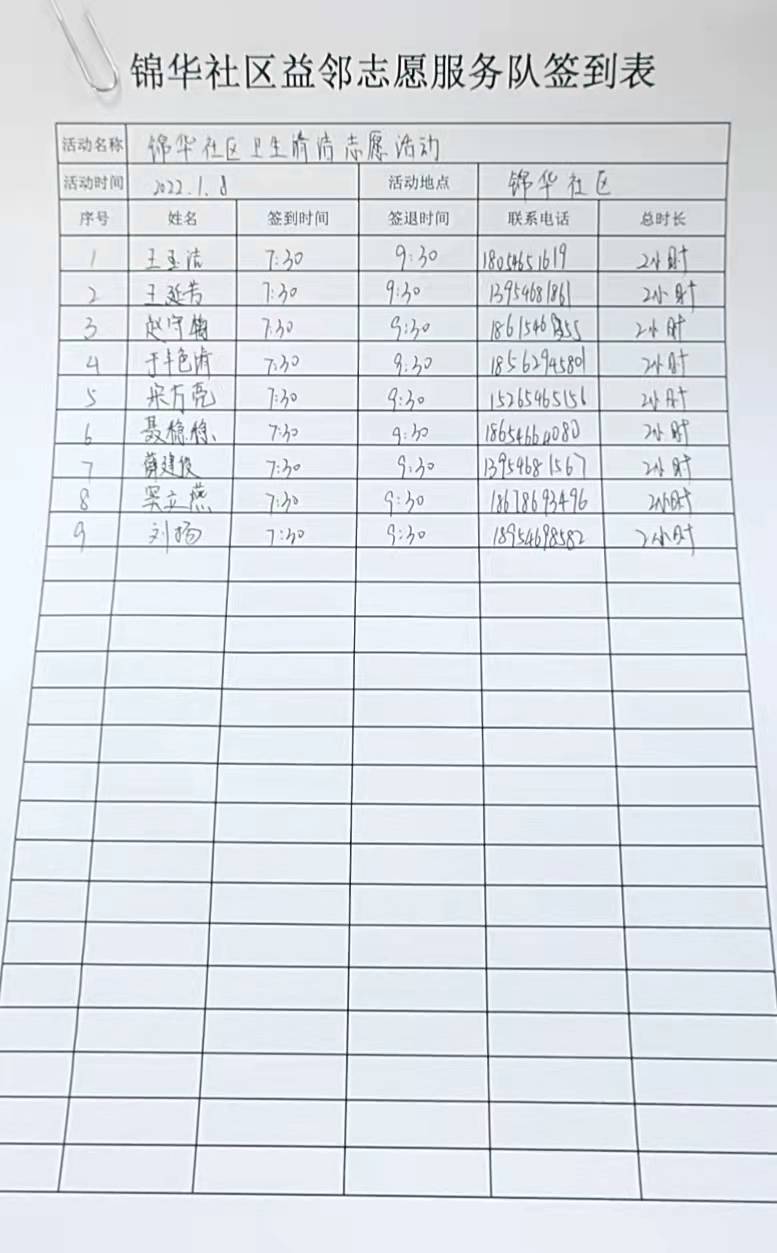 锦华社区益邻志愿服务队签到表
活动名称 锦华社区卫生清洁志愿活动
活动时间 2022.1.8 活动地点 锦华社区
序号 姓名 签到时间 签退时间 联系电话 总时长
1 王玉洁 7:30 9:30 18054651619 2小时
2 王延芳 7:30 9:30 13954681861 2小时
3 赵守梅 7:30 9:30 2小时
4 7:30 9:30 18562945801 2小时
5 宋方亮 7:30 9:30 15265465156 2小时
6 聂稳稳 7:30 9:30 18654664080 2小时
7 薛建俊 7:30 9:30 13954681567 2小时
8 窦立燕 7:30 9:30 18678693496 2小时
9 刘杨 7:30 9:30 18954698582 2小时